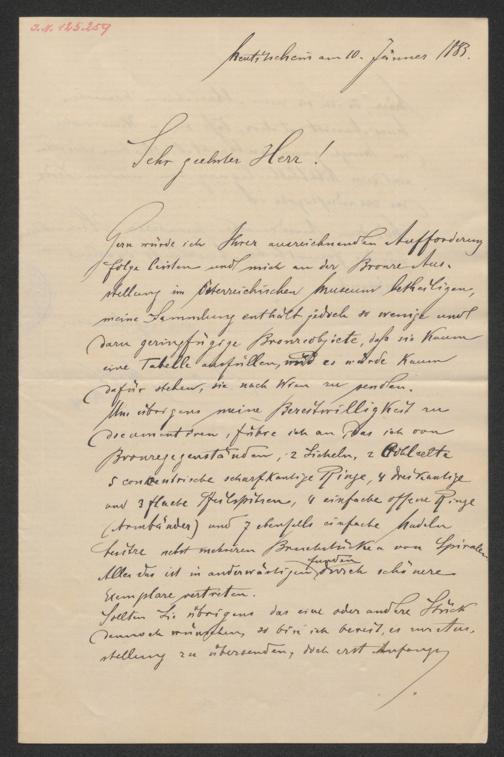 J.N. 125.259
Neutitschein am 10. Jänner 1883.
Sehr geehrter Herr!
Gern würde ich Ihrer auszeichnenden Aufforderung
folge leisten und mich an der Bronze Aus-
stellung im österreichischen Museum betheiligen,
meine Sammlung enthält jedoch so wenige und
dazu geringfügige Bronzeobjecte, daß sie kaum
eine Tabelle ausfüllen, und es würde kaum
dafür stehen, sie nach Wien zu senden.
Um übrigens meine Bereitwilligkeit zu
documentiren, führe ich an, das ich von
Bronzegegenständen, 2 Sicheln, 2 Hohlcelte
5 concentrische scharfkantige Ringe, 4 dreikantige
und 3 flache Pfeilspitzen, 4 einfache offene Ringe
(Armbänder) und 7 ebenfalls einfache Nadeln
besitze nebst mehreren Bruchstücken von Spiralen
Alles das ist in anderwärtigen Funden durch schönere
Exemplare vertreten.
Sollten Sie übrigens das eine oder andere Stück
dennoch wünschen, so bin ich bereit, es zur Aus-
stellung zu übersenden, doch erst Anfangs